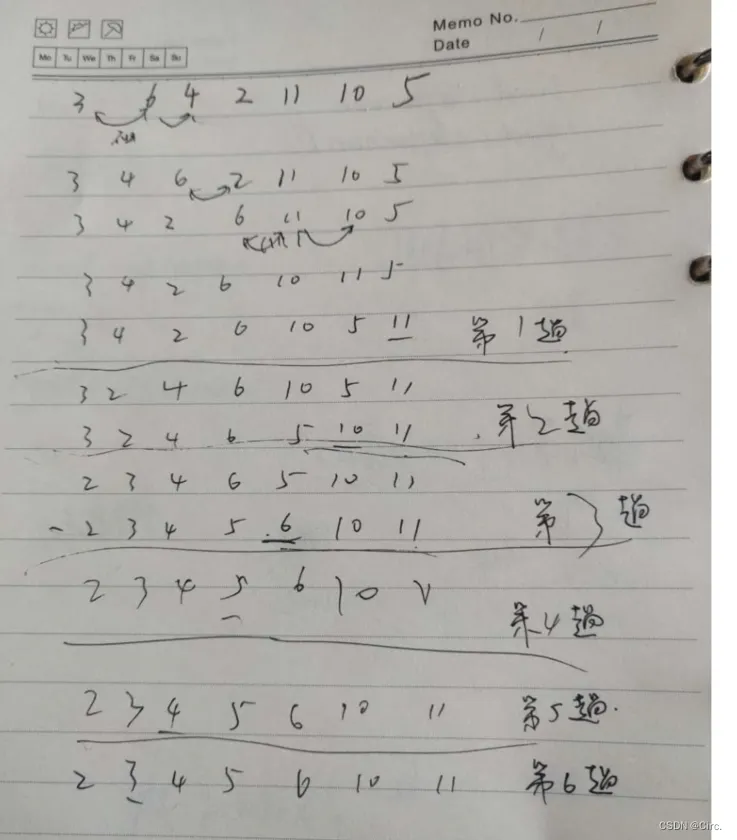 Memo No.
Date / /
Mo Tu We Th Fr Sa Su
3 6 4 2 11 10 5
3 4 6 2 11 10 5
3 4 2 6 11 10 5
3 4 2 6 10 11 5
3 4 2 6 10 5 11 第1趟
3 2 4 6 10 5 11
3 2 4 6 5 10 11 第2趟
2 3 4 6 5 10 11
2 3 4 5 6 10 11 第3趟
2 3 4 5 6 10
第4趟
2 3 4 5 6 10 11 第5趟.
2 3 4 5 6 10 11 第6趟
CSDN @Circ.